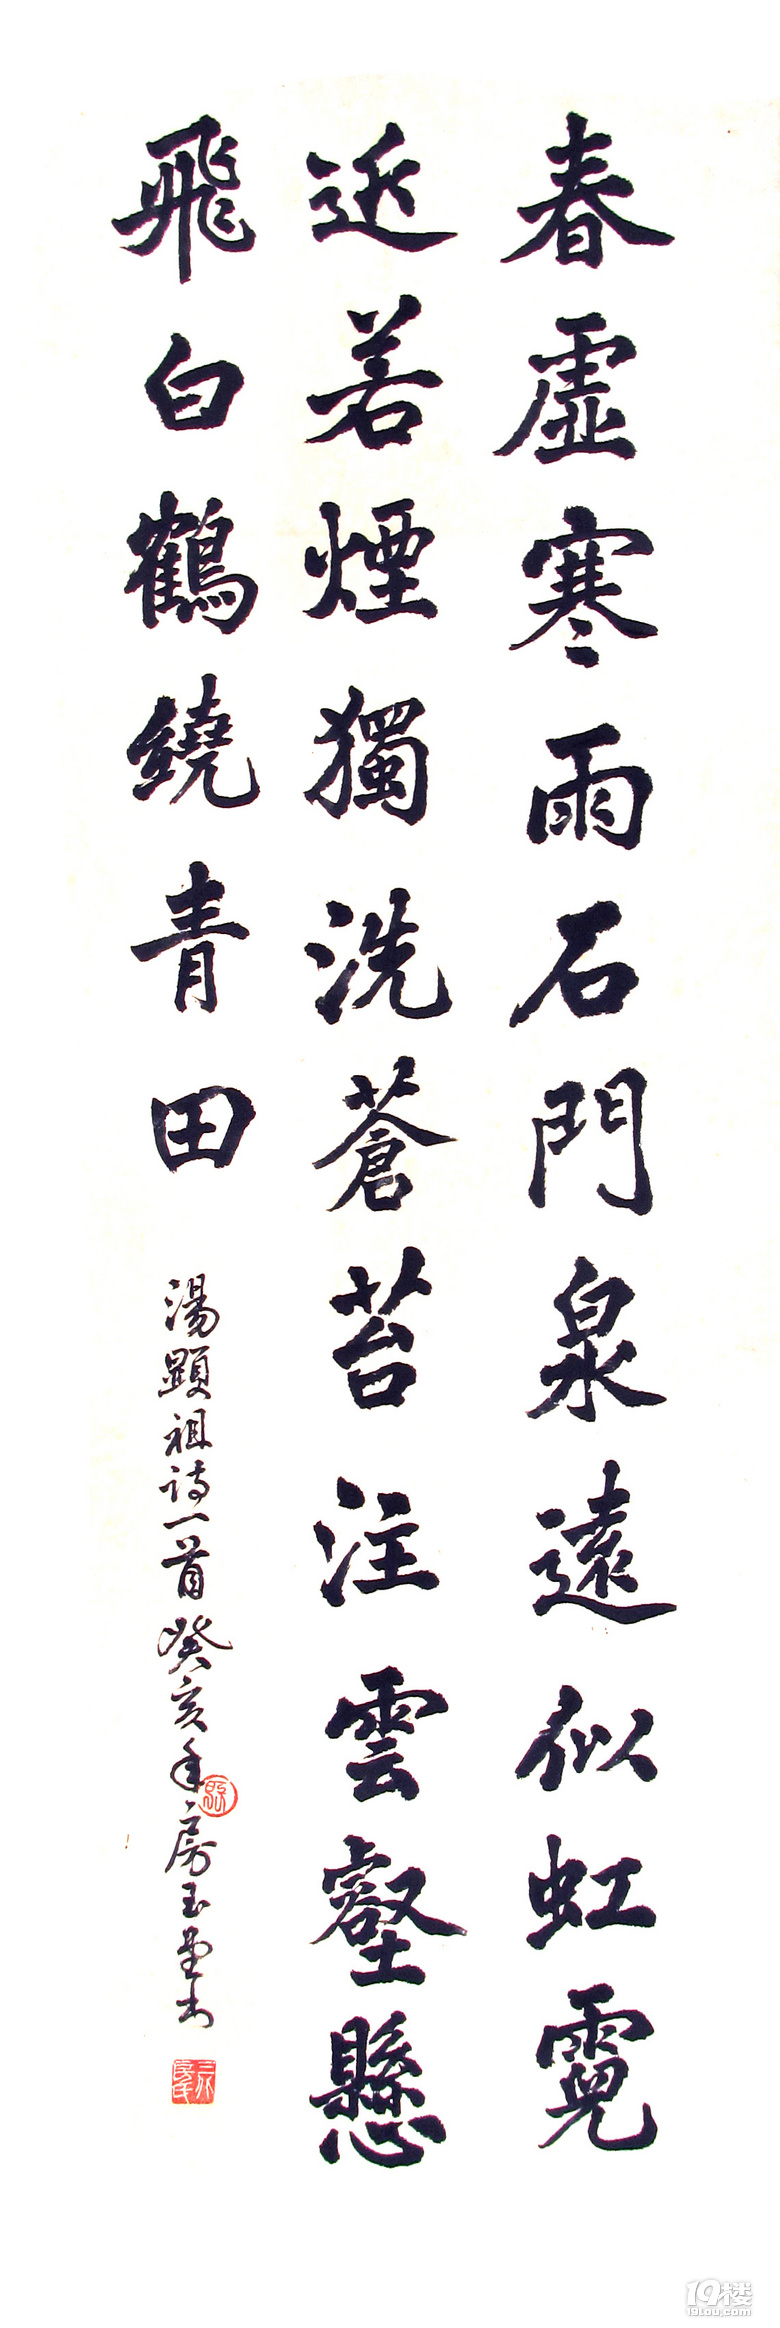 春虛寒雨石門泉遠似虹霓
近若煙獨洗蒼苔注雲壑懸
飛白鶴繞青田
湯顯祖詩一首癸亥年房玉堂书
19楼
19lou.com